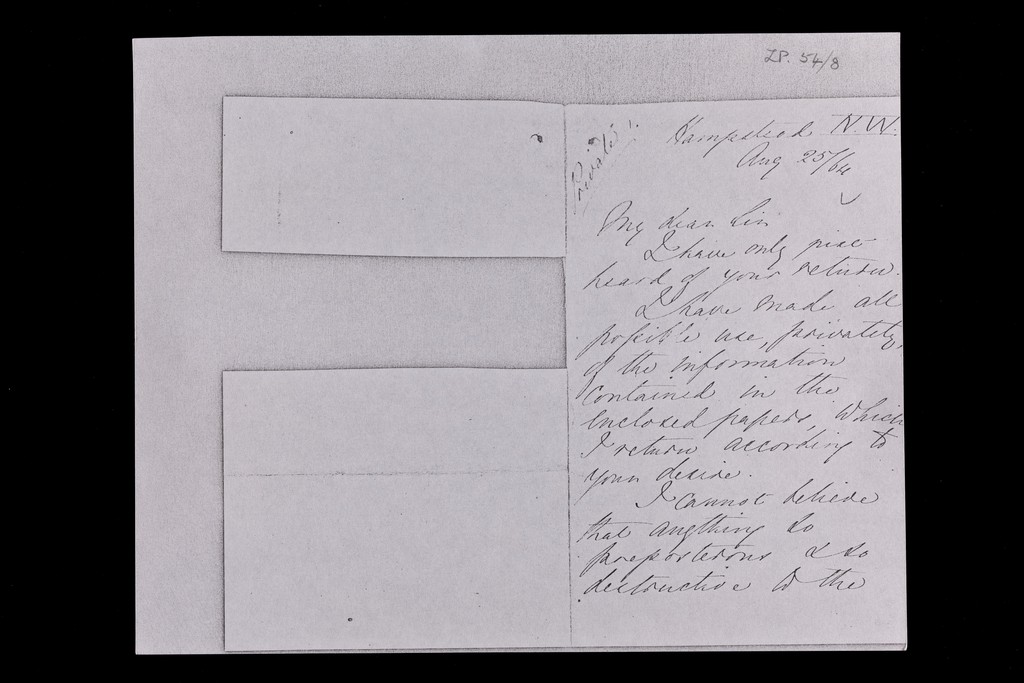 ZP. 54/8
Private!
Hampstead N.W.
Aug 25/64
My dear Sir
I have only just
heard of your return.
I have made all
possible use, privately,
of the information
contained in the
enclosed papers, which
I return according to
your desire.
I cannot believe
that anything so
preposterous & so
destructive to the